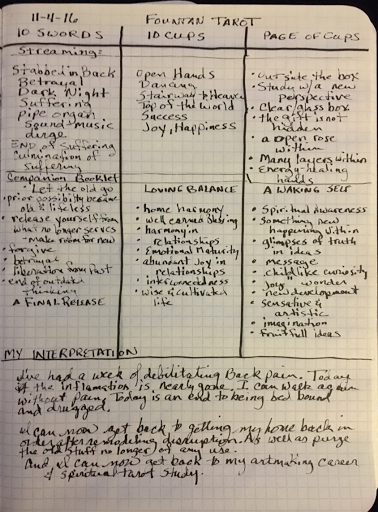 11-4-16 FOUNTAIN TAROT
10 SWORDS
Streaming:
Stabbed in Back
Betrayal
Dark Night
Suffering
Pipe organ
Sound music
dirge
END of Suffering
Culmination of
suffering
Companion Booklet
• Let the old go
• prior possibility became
old & lifeless
• release yourself from
what no longer serves
- make room for new
• forgive
• betrayal
• liberation from Past
• end of outdated
thinking
A FINAL RELEASE
10 CUPS
Open Hands
Dancing
Stairway to Heaven
Top of the World
Success
Joy, Happiness
LOVING BALANCE
• home harmony
• well earned
• harmony in
relationships
• Emotional Maturity
• abundant Joy in
relationships
• interconnectedness
• wise & cultivated
life
PAGE of CUPS
• outside the box
• Study w/ a new
perspective
• Clear/glass box
• the gift is not
hidden
• a open rose
within
• Many layers within
• Energy-healing
hands
A WAKING SELF
• Spiritual awareness
• Something new
happening within
• glimpses of truth
in ideas
• message
• childlike curiosity
"joy" wonder
• new development
• sensative &
artistic
• imagination
• fruitfull ideas
MY INTERPRETATION
I've had a week of debilitating Back pain. Today
the inflamation is nearly gone. I can walk again
without pain. Today is an end to being bed bound
and drugged.
I can now get back to getting my home back in
order after remodeling disruption. As well as purge
the old stuff no longer of any use.
And, I can now get back to my artmaking career
& spiritual tarot study.